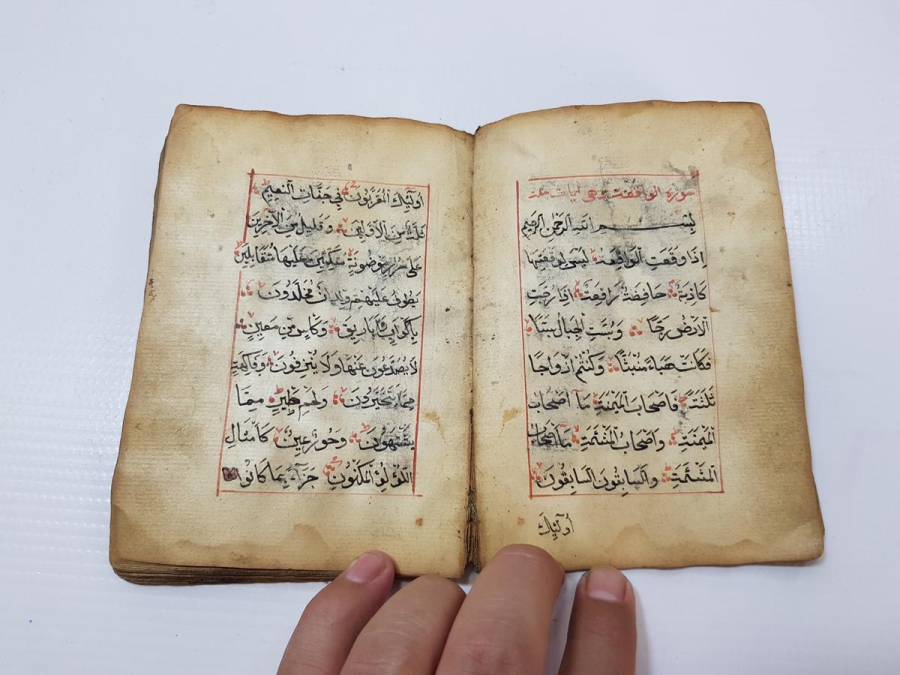 سورة الواقعة وهي
بِسْمِ اللهِ الرَّحْمٰنِ الرَّحِيمِ
اِذَا وَقَعَتِ الْوَاقِعَةُ لَيْسَ لِوَقْعَتِهَا
كَاذِبَةٌ خَافِضَةٌ رَافِعَةٌ اِذَا رُجَّتِ
الْاَرْضُ رَجًّا وَبُسَّتِ الْجِبَالُ بَسًّا
فَكَانَتْ هَبَاءً مُنْبَثًّا وَكُنْتُمْ اَزْوَاجًا
ثَلٰثَةً فَاَصْحَابُ الْمَيْمَنَةِ مَا اَصْحَابُ
الْمَيْمَنَةِ وَاَصْحَابُ الْمَشْئَمَةِ مَا اَصْحَابُ
الْمَشْئَمَةِ وَالسَّابِقُونَ السَّابِقُونَ
اُولٰئِكَ
اُولٰئِكَ الْمُقَرَّبُونَ فِي جَنَّاتِ النَّعِيمِ
ثُلَّةٌ مِنَ الْاَوَّلِينَ وَقَلِيلٌ مِنَ الْاٰخِرِينَ
عَلٰى سُرُرٍ مَوْضُونَةٍ مُتَّكِئِينَ عَلَيْهَا مُتَقَابِلِينَ
يَطُوفُ عَلَيْهِمْ وِلْدَانٌ مُخَلَّدُونَ
بِاَكْوَابٍ وَاَبَارِيقَ وَكَاْسٍ مِنْ مَعِينٍ
لَا يُصَدَّعُونَ عَنْهَا وَلَا يُنْزِفُونَ وَفَاكِهَةٍ
مِمَّا يَتَخَيَّرُونَ وَلَحْمِ طَيْرٍ مِمَّا
يَشْتَهُونَ وَحُورٌ عِينٌ كَاَمْثَالِ
اللُّؤْلُؤِ الْمَكْنُونِ جَزَاءً بِمَا كَانُوا